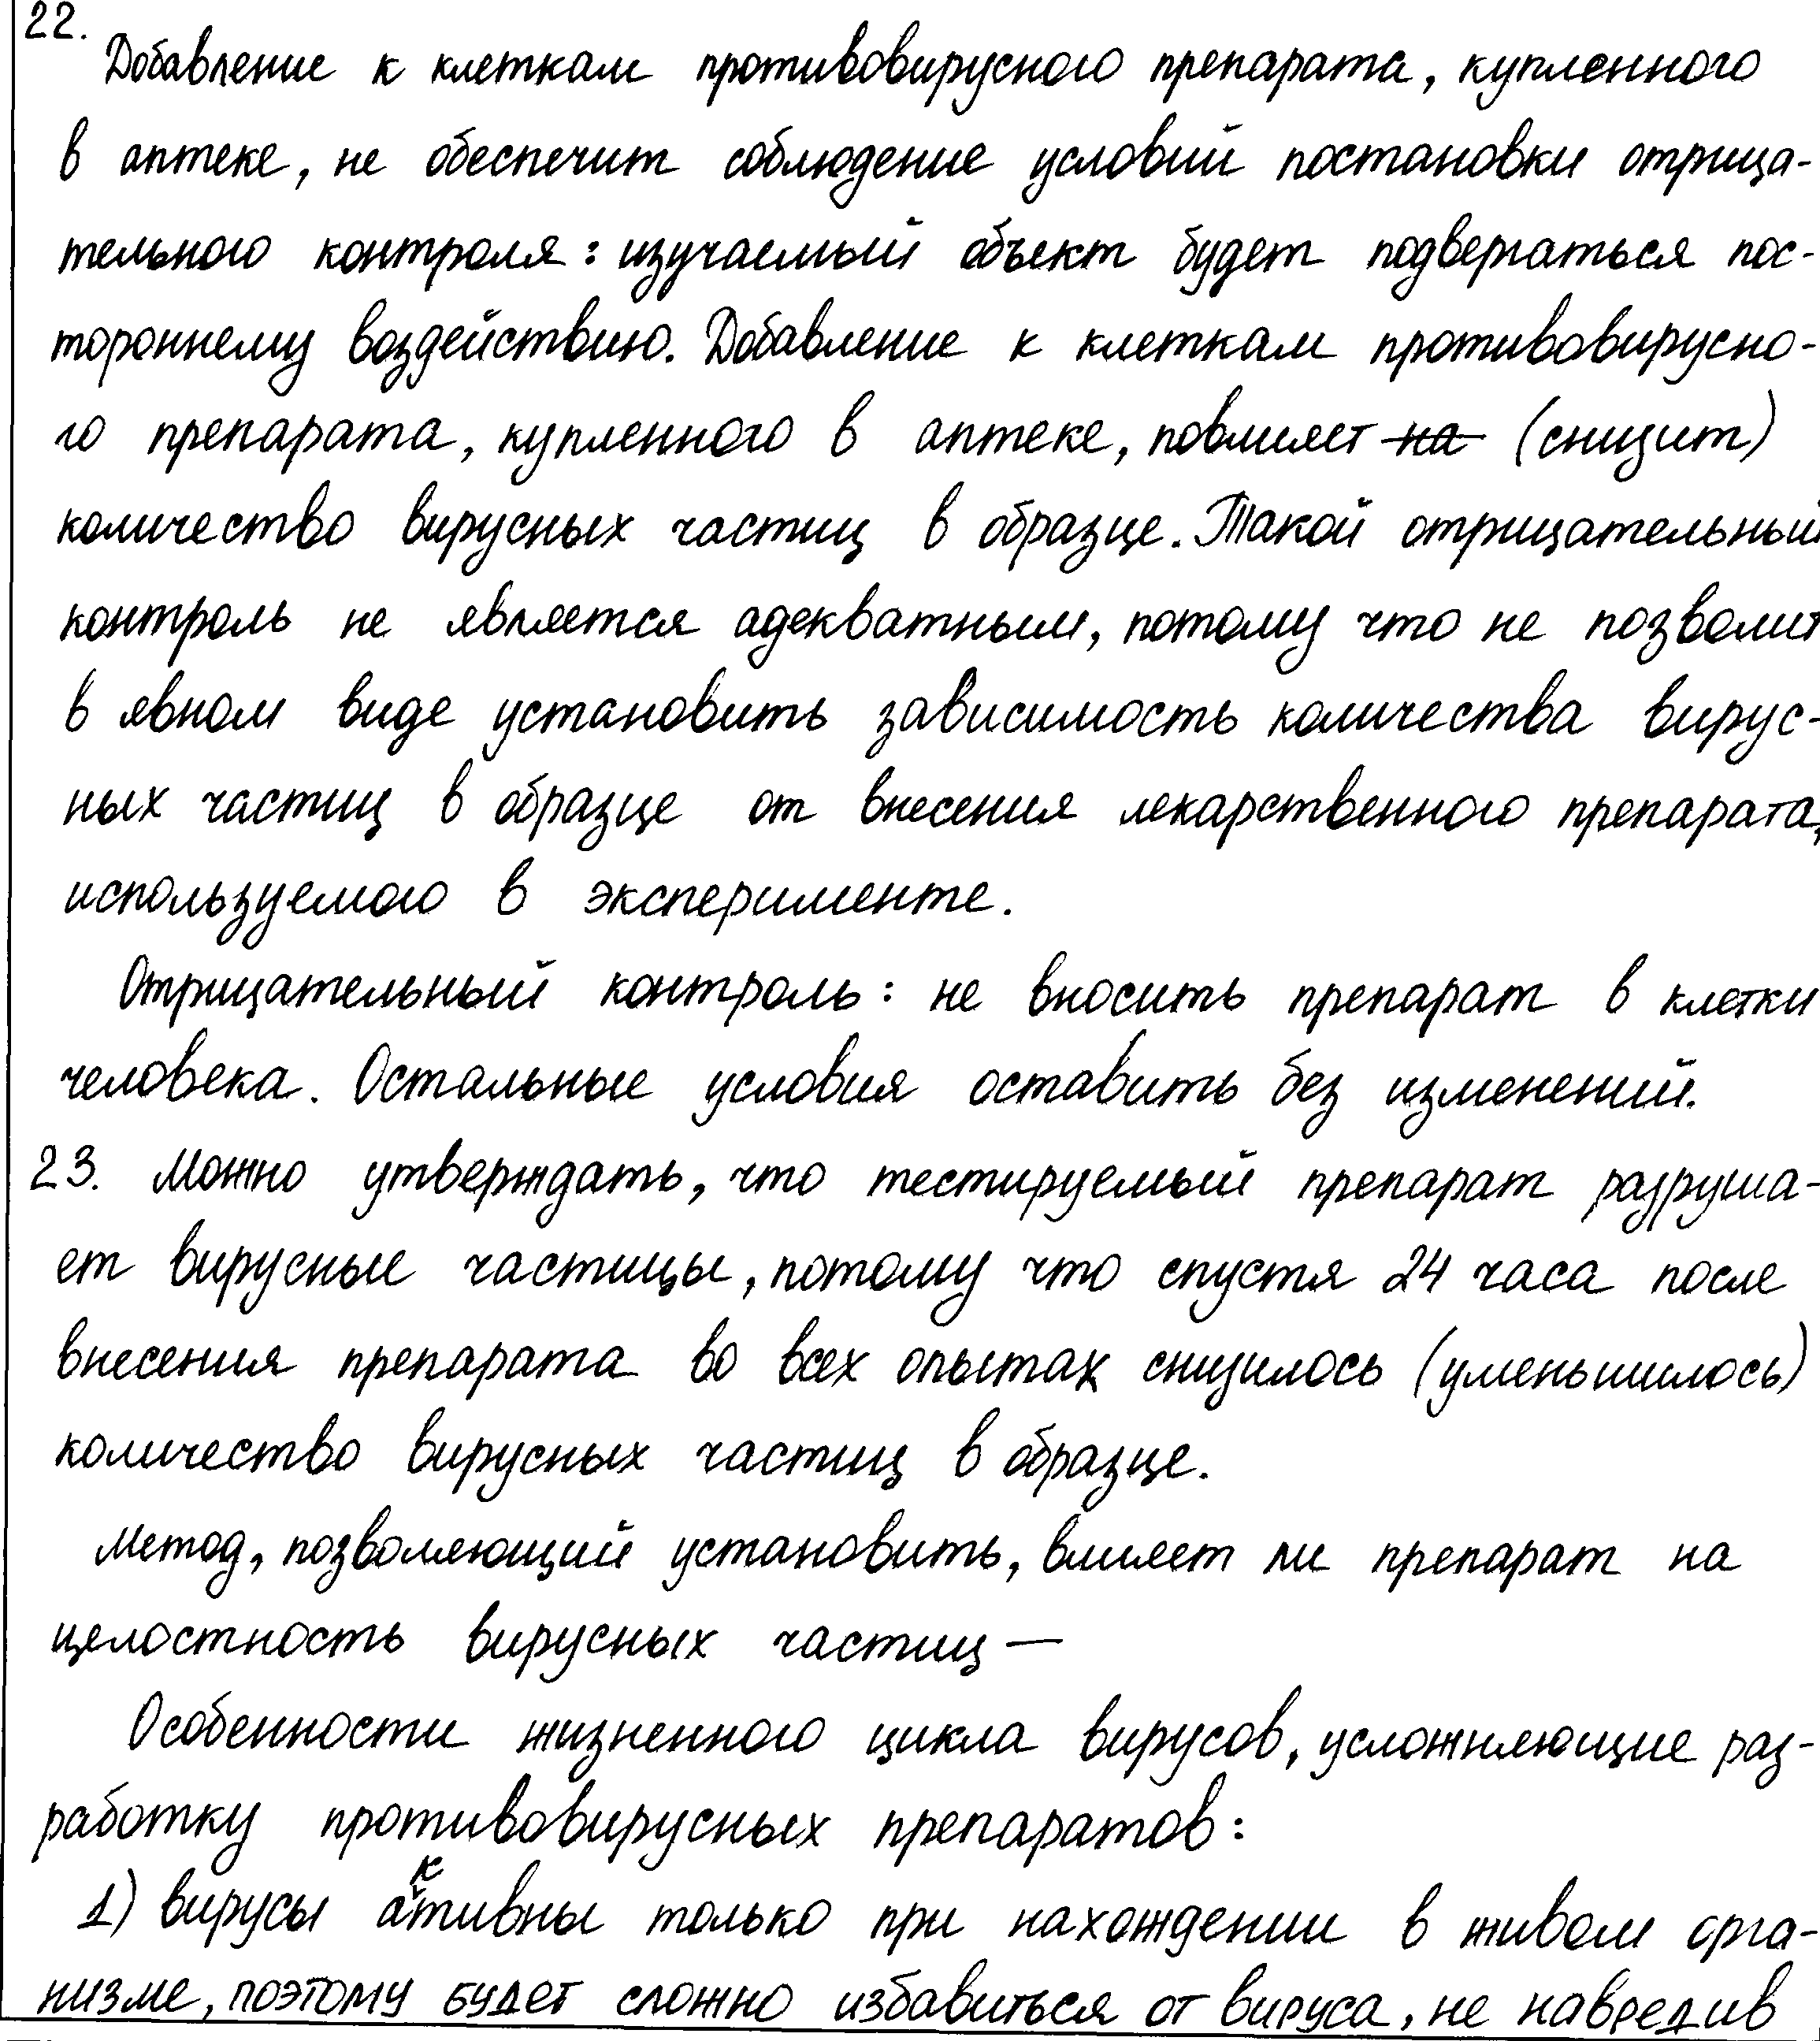 22.
Добавление к клеткам противовирусного препарата, купленного
в аптеке, не обеспечит соблюдение условий постановки отрица-
тельного контроля: изучаемый объект будет подвергаться пос-
тороннему воздействию. Добавление к клеткам противовирусно-
го препарата, купленного в аптеке, повлияет на (снизит)
количество вирусных частиц в образце. Такой отрицательный
контроль не является адекватным, потому что не позволит
в явном виде установить зависимость количества вирус-
ных частиц в образце от внесения лекарственного препарата,
используемого в эксперименте.
Отрицательный контроль: не вносить препарат в клетки
человека. Остальные условия оставить без изменений.
23. Можно утверждать, что тестируемый препарат разруша-
ет вирусные частицы, потому что спустя 24 часа после
внесения препарата во всех опытах снизилось (уменьшилось)
количество вирусных частиц в образце.
Метод, позволяющий установить, влияет ли препарат на
целостность вирусных частиц —
Особенности жизненного цикла вирусов, усложняющие раз-
работку противовирусных препаратов:
1) вирусы активны только при нахождении в живом орга-
низме, поэтому будет сложно избавиться от вируса, не навредив